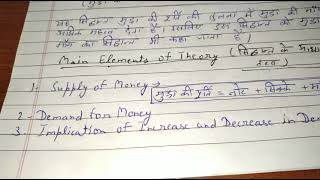 यह सिद्धान्त मुद्रा की पूर्ति की तुलना में मुद्रा की माँग
अधिक महत्व देता है। इसलिए इस सिद्धान्त को मुद्रा
माँग का सिद्धान्त भी कहा जाता है।
Main Elements of Theory (सिद्धान्त के
तत्व)
1. Supply of Money →
[मुद्रा की पूर्ति = नोट + सिक्के +
2. Demand for Money
3. Implication of Increase and Decrease in De